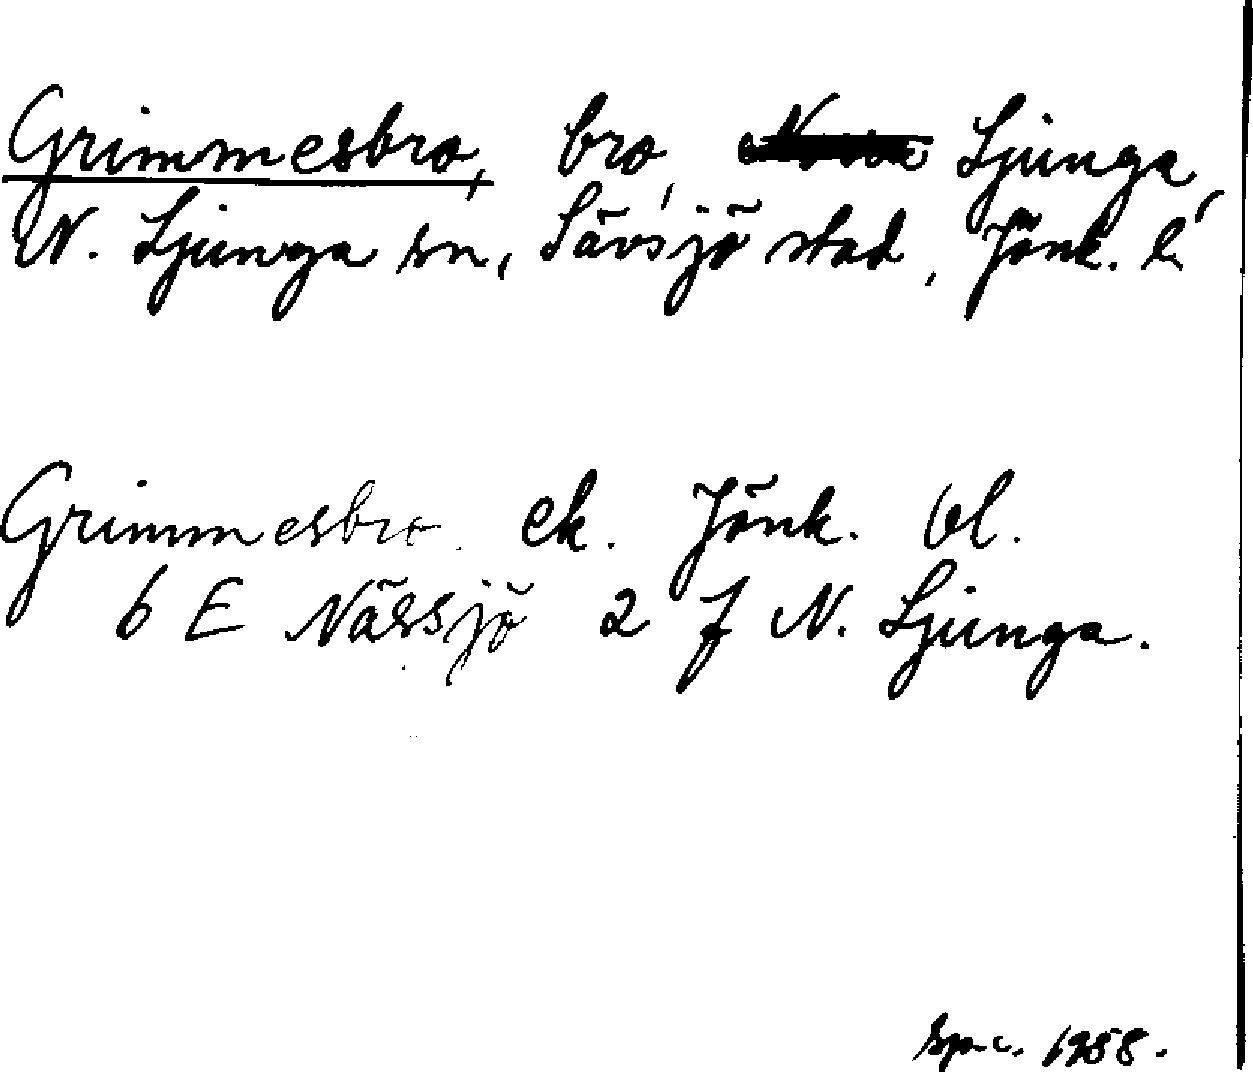 Grimmesbro, bro, Ljunga,
N. Ljunga sn, Sävsjö stad, Jönk. l.
Grimmesbro. ek. Jönk. bl.
6 E Nässjö 2 f N. Ljunga.
1958.